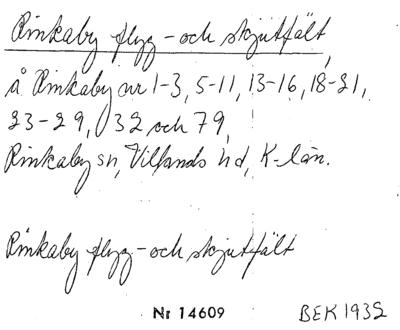 Rinkaby flyg-och skjutfält,
å Rinkaby nr 1-3, 5-11, 13-16, 18-21,
23-29, 32 och 79,
Rinkaby sn, Villands hd, K-län.
Rinkaby flyg-och skjutfält
Nr 14609
BEK 1932